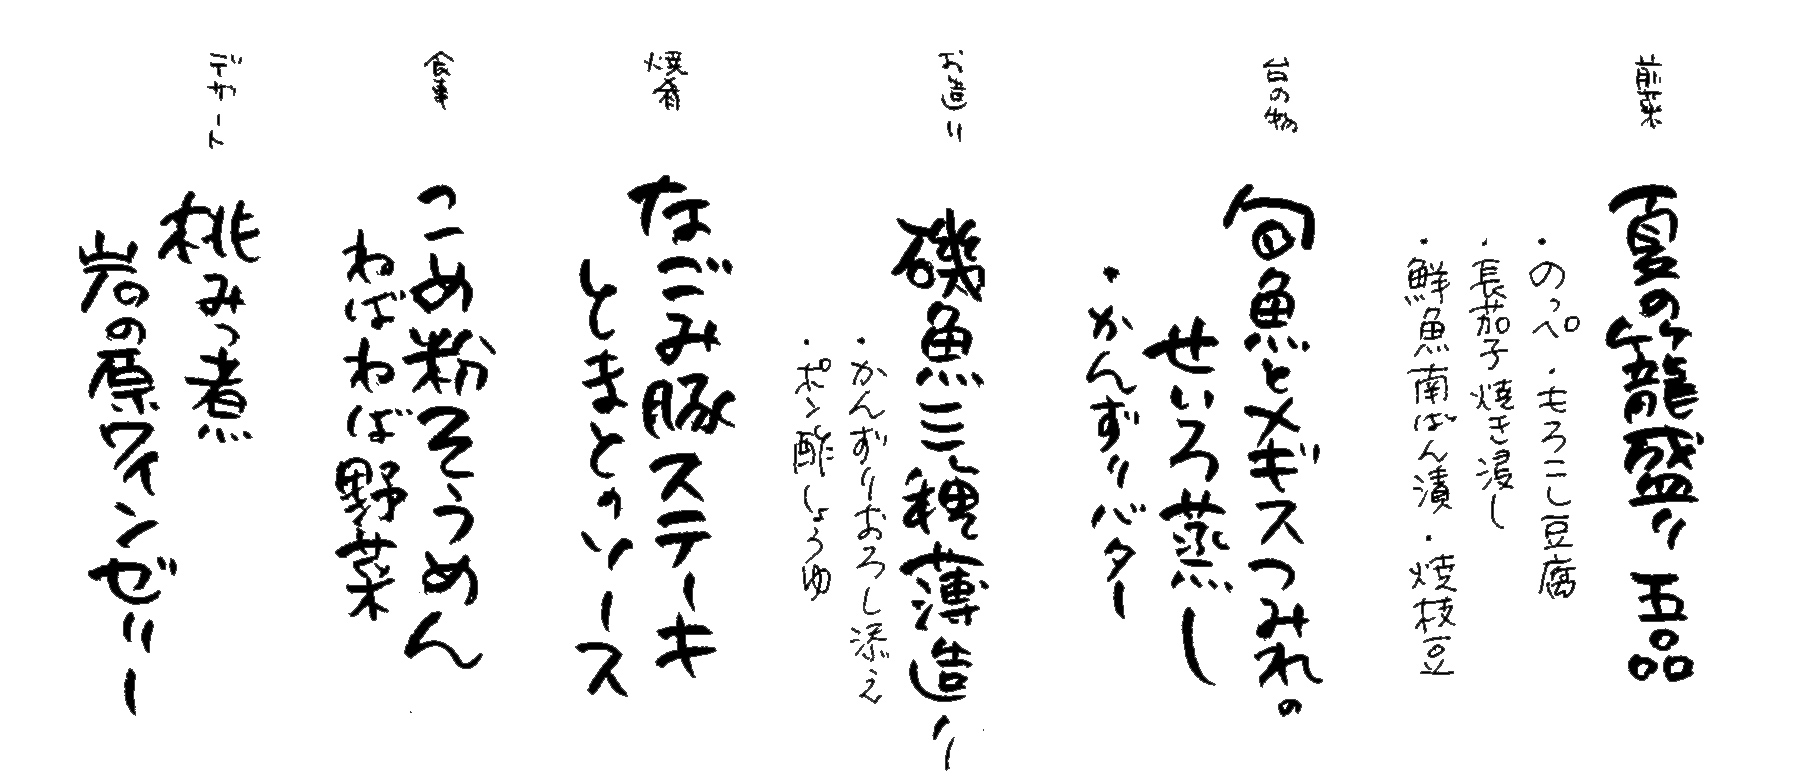 前菜
夏の籠盛り 五品
・のっペ・もろこし豆腐
・長茄子焼き浸し
・鮮魚南ばん漬・焼枝豆
台の物
旬魚とメギスつみれの
せいろ蒸し
・かんずりバター
お造り
磯魚三種薄造り
・かんずりおろし添え
・ポン酢しょうゆ
焼肴
なごみ豚ステーキ
とまとのソース
食事
こめ粉そうめん
ねばねば野菜
デザート
桃みつ煮
岩の原ワインゼリー